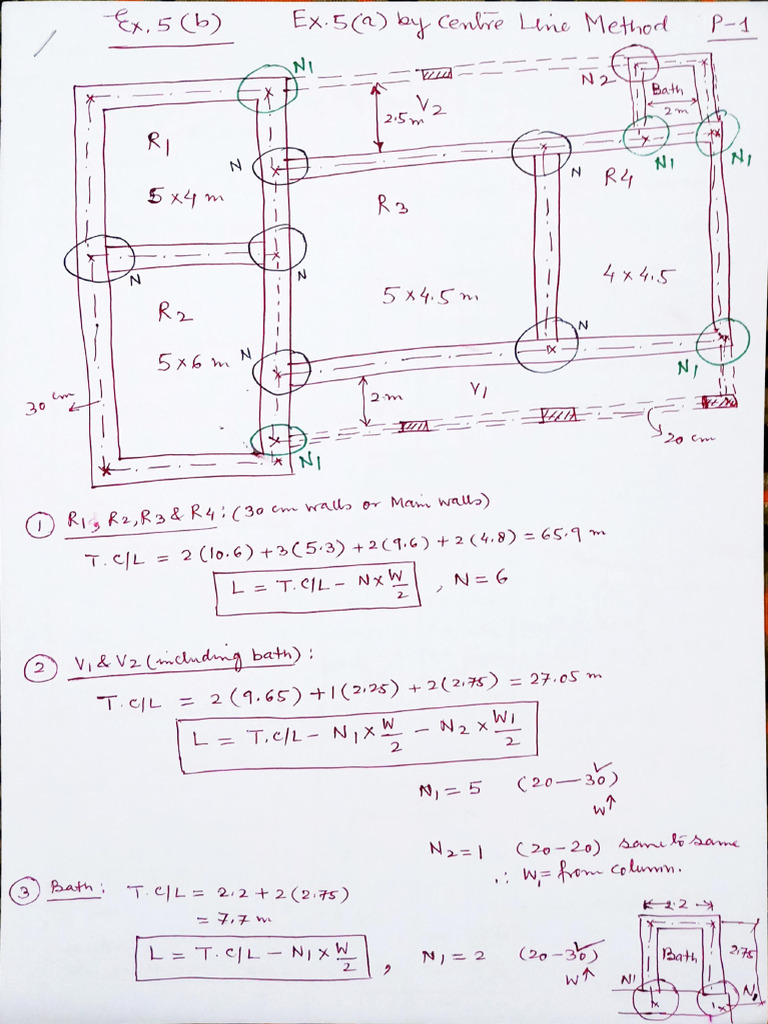 Ex. 5 (b)
Ex. 5(a) by Centre Line Method
P-1
N1
N2
Bath
2m
2.5m
V2
R1
N
N
N1
N1
5 x 4 m
R3
R4
N
N
R2
5 x 4.5 m
4 x 4.5
5 x 6 m
N
N
30 cm
2m
V1
N1
N1
20 cm
① R1, R2, R3 & R4: (30 cm walls or Main walls)
T.C/L = 2(10.6) + 3(5.3) + 2(9.6) + 2(4.8) = 65.9 m
L = T.C/L - N x W/2 , N = 6
② V1 & V2 (including bath):
T.C/L = 2(9.65) + 1(2.25) + 2(2.75) = 27.05 m
L = T.C/L - N1 x W/2 - N2 x W1/2
N1 = 5 (20 — 30) ✓
W↑
N2 = 1 (20-20) same to same
∴ W1 = from column.
③ Bath: T.C/L = 2.2 + 2(2.75)
= 7.7 m
L = T.C/L - N1 x W/2 , N1 = 2 (20-30) ✓
W↑
2.2
Bath
2.75
N1
N1